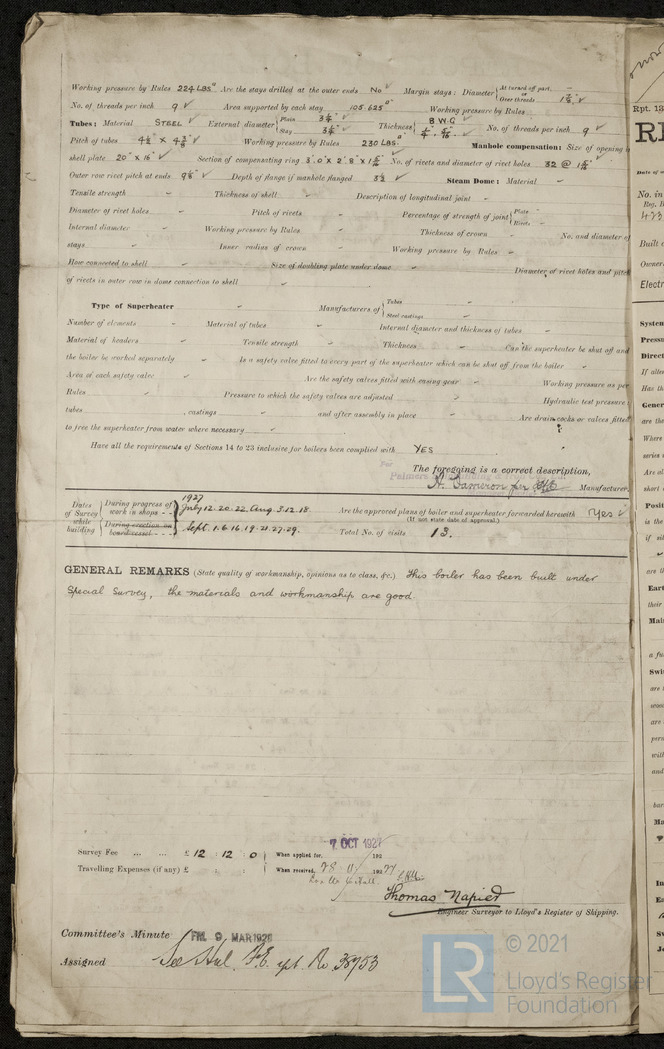 Working pressure by Rules 224 LBS □" Are the stays drilled at the outer ends No ✓ Margin stays: Diameter { At turned off part, – or Over threads 1⅞" ✓
No. of threads per inch 9 ✓ Area supported by each stay 105.625 □" Working pressure by Rules
Tubes: Material STEEL ✓ External diameter { Plain 3¼" ✓ Stay 3¼" ✓ Thickness { 8 W.G ✓ No. of threads per inch 9 ✓
Pitch of tubes 4½" x 4⅜" ✓ Working pressure by Rules 230 LBS. □" Manhole compensation: Size of opening i
shell plate 20" x 16" ✓ Section of compensating ring No. of rivets and diameter of rivet holes 32 @
Outer row rivet pitch at ends Depth of flange if manhole flanged ✓ Steam Dome: Material –
Tensile strength Thickness of shell Description of longitudinal joint
Diameter of rivet holes Pitch of rivets Percentage of strength of joint { Plate Rivets
Internal diameter Working pressure by Rules Thickness of crown No. and diameter of
stays Inner radius of crown Working pressure by Rules
How connected to shell Size of doubling plate under dome Diameter of rivet holes and pitch
of rivets in outer row in dome connection to shell
Type of Superheater Manufacturers of { Tubes Steel castings
Number of elements Material of tubes Internal diameter and thickness of tubes
Material of headers Tensile strength Thickness Can the superheater be shut off and
the boiler be worked separately Is a safety valve fitted to every part of the superheater which can be shut off from the boiler
Area of each safety valve Are the safety valves fitted with easing gear Working pressure as per
Rules Pressure to which the safety valves are adjusted Hydraulic test pressure:
tubes , castings and after assembly in place Are drain cocks or valves fitted
to free the superheater from water where necessary
Have all the requirements of Sections 14 to 23 inclusive for boilers been complied with YES
The foregoing is a correct description,
For Palmers
A. Cameron per Manufacturer.
Dates of Survey while building { During progress of work in shops - - 1927 July 12. 20. 22. Aug. 3. 12. 18. Are the approved plans of boiler and superheater forwarded herewith Yes ✓
(If not state date of approval.)
During erection on board vessel - - - Sept. 1. 6. 16. 19. 21. 27. 29. Total No. of visits 13.
GENERAL REMARKS (State quality of workmanship, opinions as to class, &c.) This boiler has been built under
Special Survey, the materials and workmanship are good.
7 OCT 1927
Survey Fee ... ... £ 12 : 12 : 0 When applied for, 192
Travelling Expenses (if any) £ : : When received, 192
Thomas Napier
Engineer Surveyor to Lloyd's Register of Shipping.
Committee's Minute FRI. 9 MAR 1928
Assigned See Hul. F.E. rpt. No. 38953
© 2021
LR
Lloyd's Register
Foundation
Rpt. 13
RE
Date of w
No. in
Reg. B
473
Built a
Owner
Electr
System
Pressu
Direct
If alte
Has th
Gener
are the
Where
series o
Are al
short c
Positi
is the
if sit
are th
Eart
their
Mai
a fu
Swi
are t
woo
are
pern
with
and
bar
Ma
In
Ea
Sw
Jo